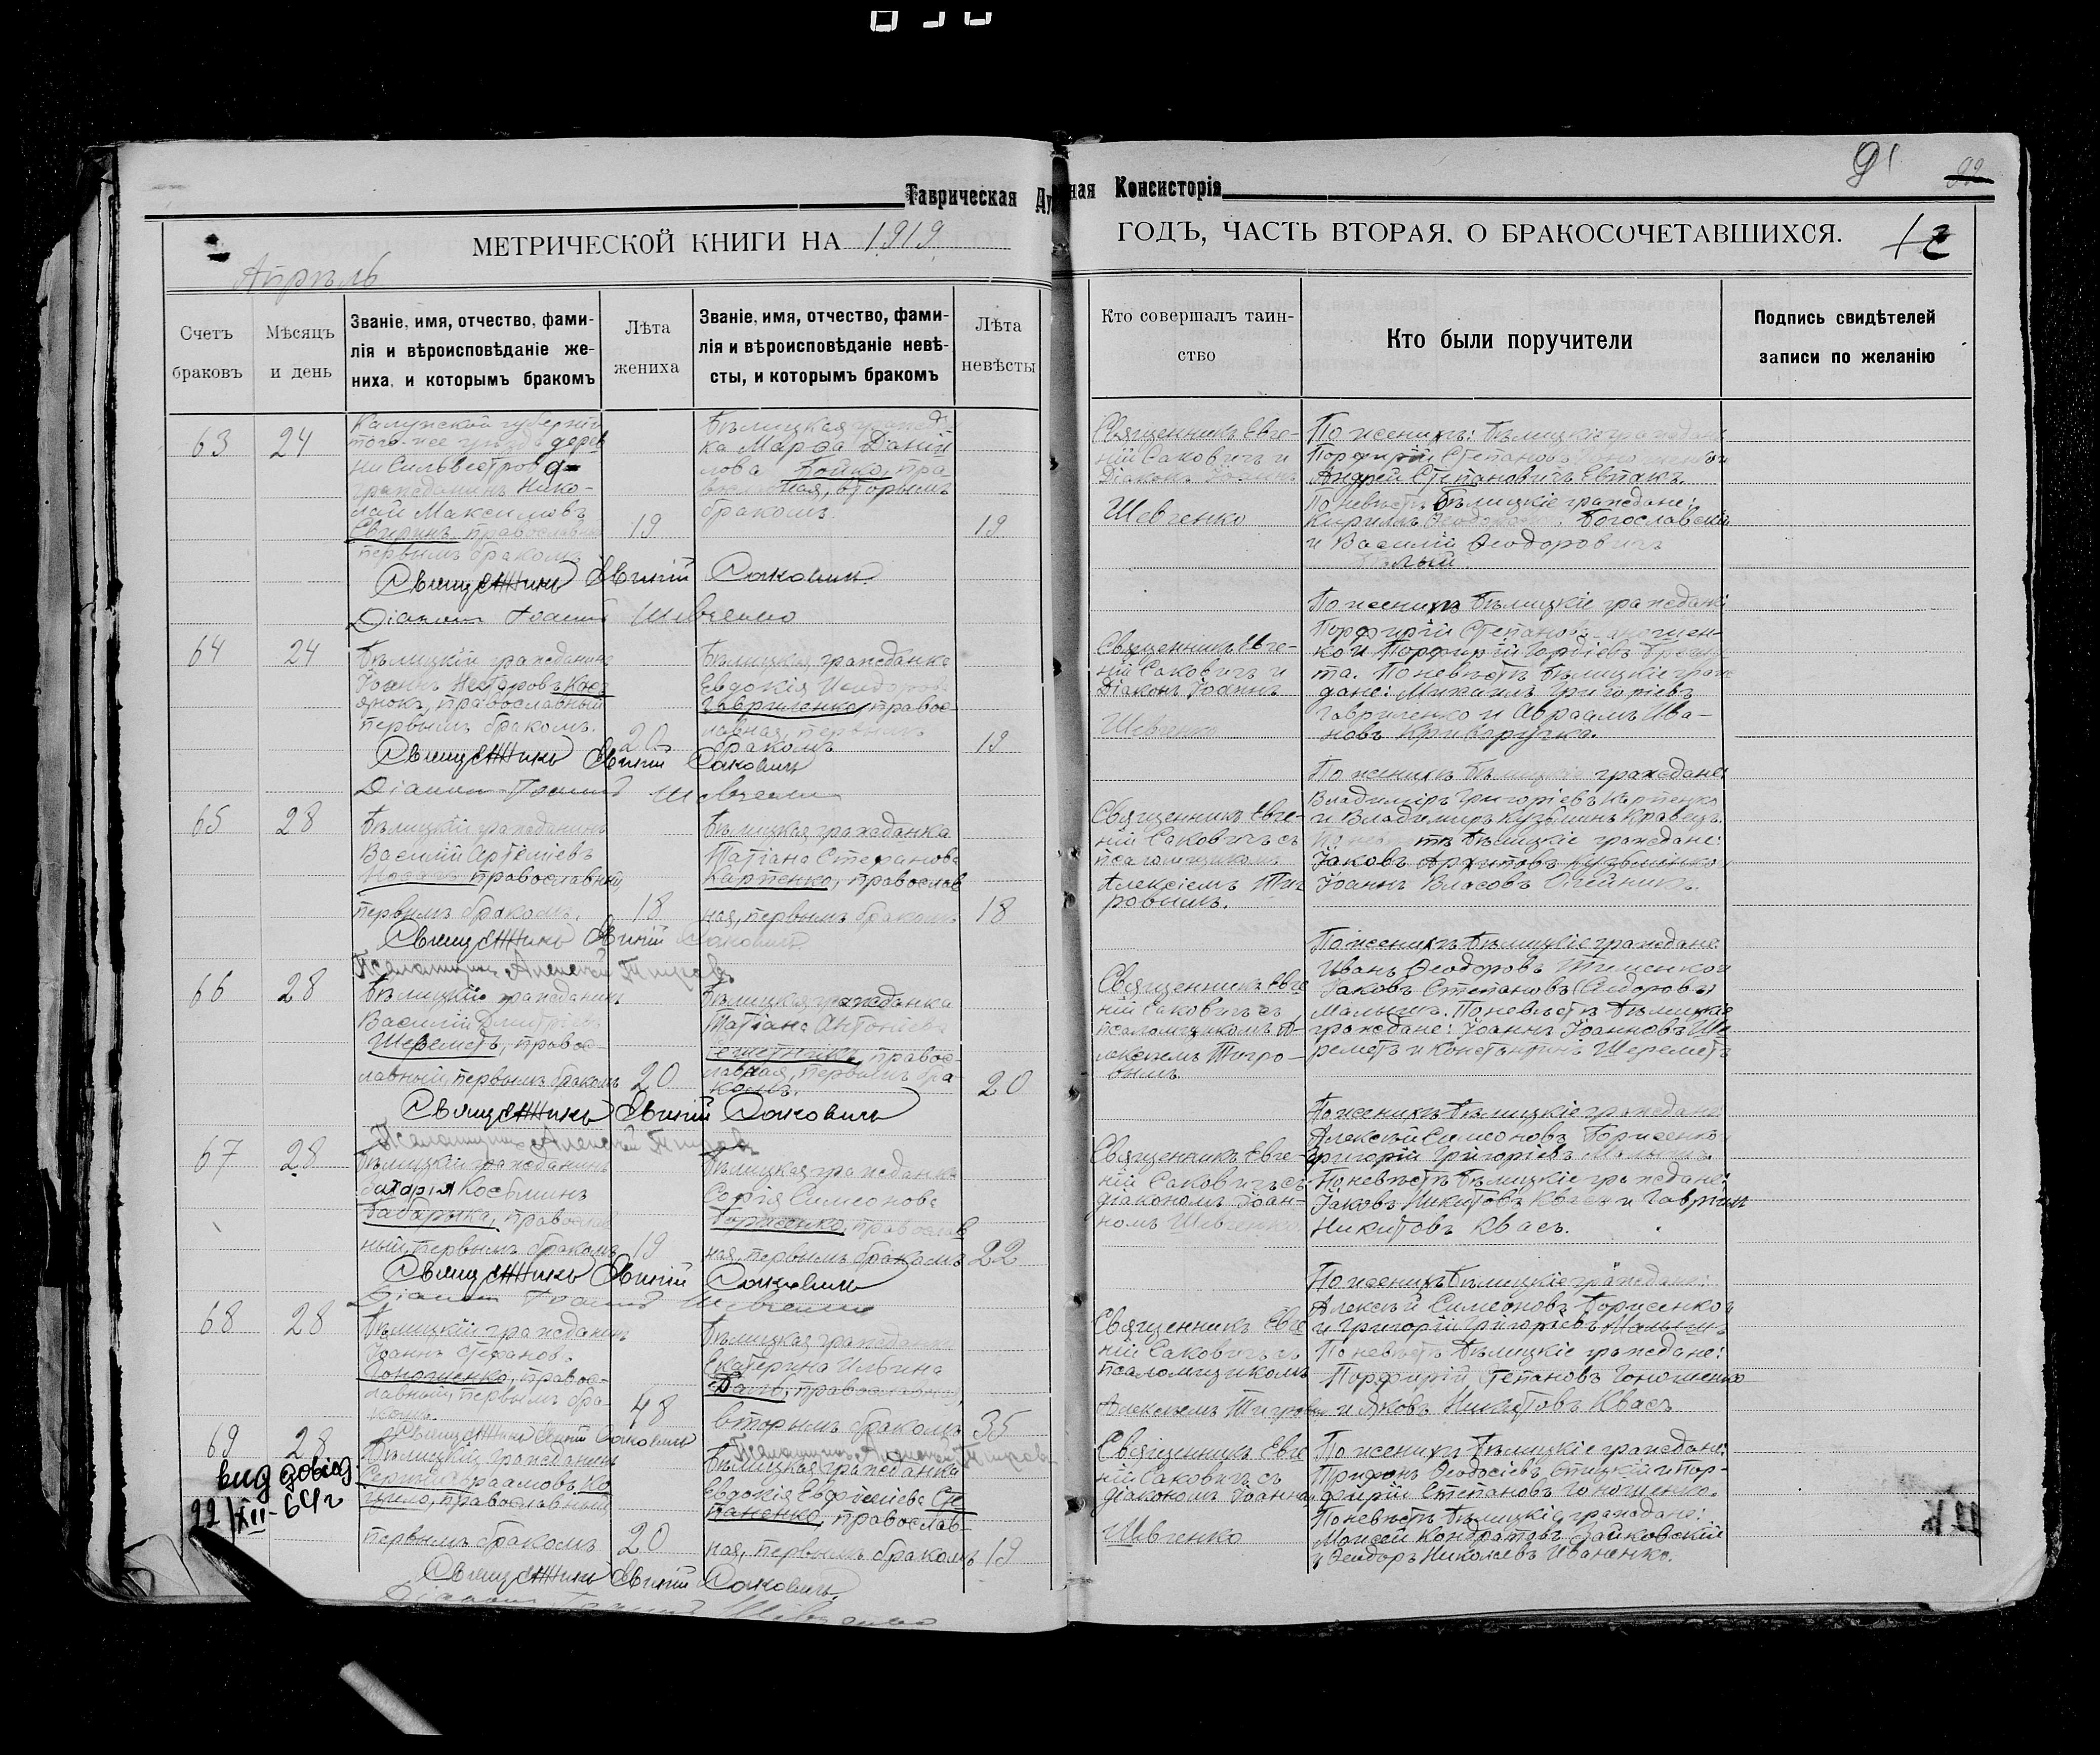 91 92
Таврическая Ду ная Консисторія
МЕТРИЧЕСКОЙ КНИГИ НА 1919
ГОДЪ, ЧАСТЬ ВТОРАЯ, О БРАКОСОЧЕТАВШИХСЯ.
Апрѣль
Счетъ браковъ
Мѣсяцъ и день
Званіе, имя, отчество, фами-
лія и вѣроисповѣданіе же-
ниха, и которымъ бракомъ
Лѣта жениха
Званіе, имя, отчество, фами-
лія и вѣроисповѣданіе невѣ-
сты, и которымъ бракомъ
Лѣта невѣсты
Кто совершалъ таин-
ство
Кто были поручители
Подпись свидѣтелей
записи по желанію
63
24
Калужской губерніи
того-же уѣзда дерев
ни
гражданинъ Нико-
лай Максимовъ
православный
первымъ бракомъ
19
Бѣлицкая гражд
ка Марфа Даніи
лова Бойко, пра
вославная, вторымъ
бракомъ.
19
Священникъ Евге-
ній Саковичъ и
Діаконъ Іоаннъ
Шевченко
По женихѣ: Бѣлицкіе граждане
Порфирій Степановъ
Андрей Степановичъ Евтакъ.
По невѣстѣ Бѣлицкіе граждане:
Кириллъ Богославскій
и Василій Феодоровичъ
Бѣлый.
Священникъ Евгеній Саковичъ
Діаконъ Іоаннъ Шевченко
64
24
Бѣлицкій гражданинъ
Іоаннъ Несторовъ
православный
первымъ бракомъ.
20
Бѣлицкая гражданка
Евдокія Исидорова
Гавриленко, правос-
лавная, первымъ
бракомъ
19
Священникъ Евге-
ній Саковичъ и
Діаконъ Іоаннъ
Шевченко
По женихѣ Бѣлицкіе граждане
Порфирій Степановъ Гоношен-
ко и Порфирій Гордіевъ
та. По невѣстѣ Бѣлицкіе граж
дане: Михаилъ Григоріевъ
Гавриленко и Авраамъ Ива-
новъ Криворучка.
Священникъ Евгеній Саковичъ
Діаконъ Іоаннъ Шевченко
65
28
Бѣлицкій гражданинъ
Василій Артеміевъ
православный
первымъ бракомъ.
18
Бѣлицкая гражданка
Татіана Стефанова
Карпенко, православ
ная, первымъ бракомъ
18
Священникъ Евге-
ній Саковичъ съ
псаломщикомъ
Алексіемъ Тиг
ровымъ.
По женихѣ Бѣлицкіе граждане
Владиміръ Григоріевъ Карпенко
и Владимиръ Кузьминъ Кравецъ.
По невѣстѣ Бѣлицкіе граждане:
Іаковъ Архиповъ Кузьменко
Іоаннъ Власовъ Олейникъ.
Священникъ Евгеній Саковичъ
Псаломщикъ Алексій Тигровъ
66
28
Бѣлицкій гражданинъ
Василій Дмитріевъ
Шереметъ, правос-
лавный, первымъ бракомъ
20
Бѣлицкая гражданка
Татіана Антоніева
правос-
лавная, первымъ бра-
комъ.
20
Священникъ Евге
ній Саковичъ съ
псаломщикомъ А-
лексіемъ Тигро-
вымъ
По женихѣ Бѣлицкіе граждане
Иванъ Феодоровъ Тименко и
Іаковъ Степановъ (Сидоровъ)
Малышъ. По невѣстѣ Бѣлицкіе
граждане: Іоаннъ Іоанновъ Ше
реметъ и Константинъ Шереметъ
Священникъ Евгеній Саковичъ
Псаломщикъ Алексій Тигровъ
67
28
Бѣлицкій гражданинъ
Захарія Косьминъ
Бабарыка, православ
ный, первымъ бракомъ
19
Бѣлицкая гражданка
Софія Симеонова
Борисенко, православ
ная, первымъ бракомъ
22
Священникъ Евге-
ній Саковичъ съ
діакономъ Іоан-
номъ Шевченко
По женихѣ Бѣлицкіе граждане
Алексѣй Симеоновъ Борисенко и
Григорій Григоріевъ Малышъ.
По невѣстѣ Бѣлицкіе граждане:
Іаковъ Никитовъ Квасъ и Гавріилъ
Никитовъ Квасъ.
Священникъ Евгеній Саковичъ
Діаконъ Іоаннъ Шевченко
68
28
Бѣлицкій гражданинъ
Іоаннъ Стефановъ
Гоношенко, правос-
лавный, первымъ бра-
комъ.
48
Бѣлицкая гражданка
Екатерина Ильина
православная,
вторымъ бракомъ
35
Священникъ Евге
ній Саковичъ съ
псаломщикомъ
Алексѣемъ Тигровы
По женихѣ Бѣлицкіе граждане:
Алексѣй Симеоновъ Борисенко
и Григорій Григоріевъ Малышъ
По невѣстѣ Бѣлицкіе граждане:
Порфирій Степановъ Гоношенко
и Яковъ Никитовъ Квасъ
Священникъ Евгеній Саковичъ
Псаломщикъ Алексій Тигровъ
69
28
вид довід
22/XII-64 г
Бѣлицкій гражданинъ
Сергій Авраамовъ Ко
цило, православный
первымъ бракомъ
20
Бѣлицкая гражданка
Евдокія Евфиміева Сте
паненко, православ-
ная, первымъ бракомъ
19
Священникъ Евге
ній Саковичъ съ
діакономъ Іоанно
Шевченко
По женихѣ Бѣлицкіе граждане:
Трифонъ Феодосіевъ и Пор-
фирій Степановъ Гоношенко.
По невѣстѣ Бѣлицкіе граждане:
Моисей Кондратовъ Зайковскій
и Феодоръ Николаевъ Иваненко.
Священникъ Евгеній Саковичъ
Діаконъ Іоаннъ Шевченко